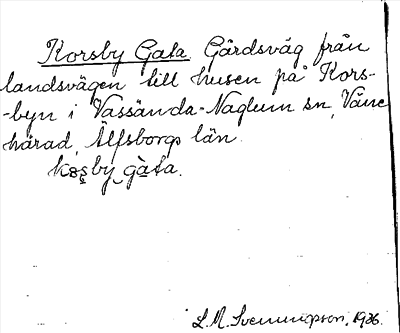 Korsby Gata Gårdsväg från
landsvägen till husen på Kors-
-byn i Vassända-Naglum sn, Väne
härad, Älfsborgs län.
gàta.
L. M. Svenungsson, 1926.